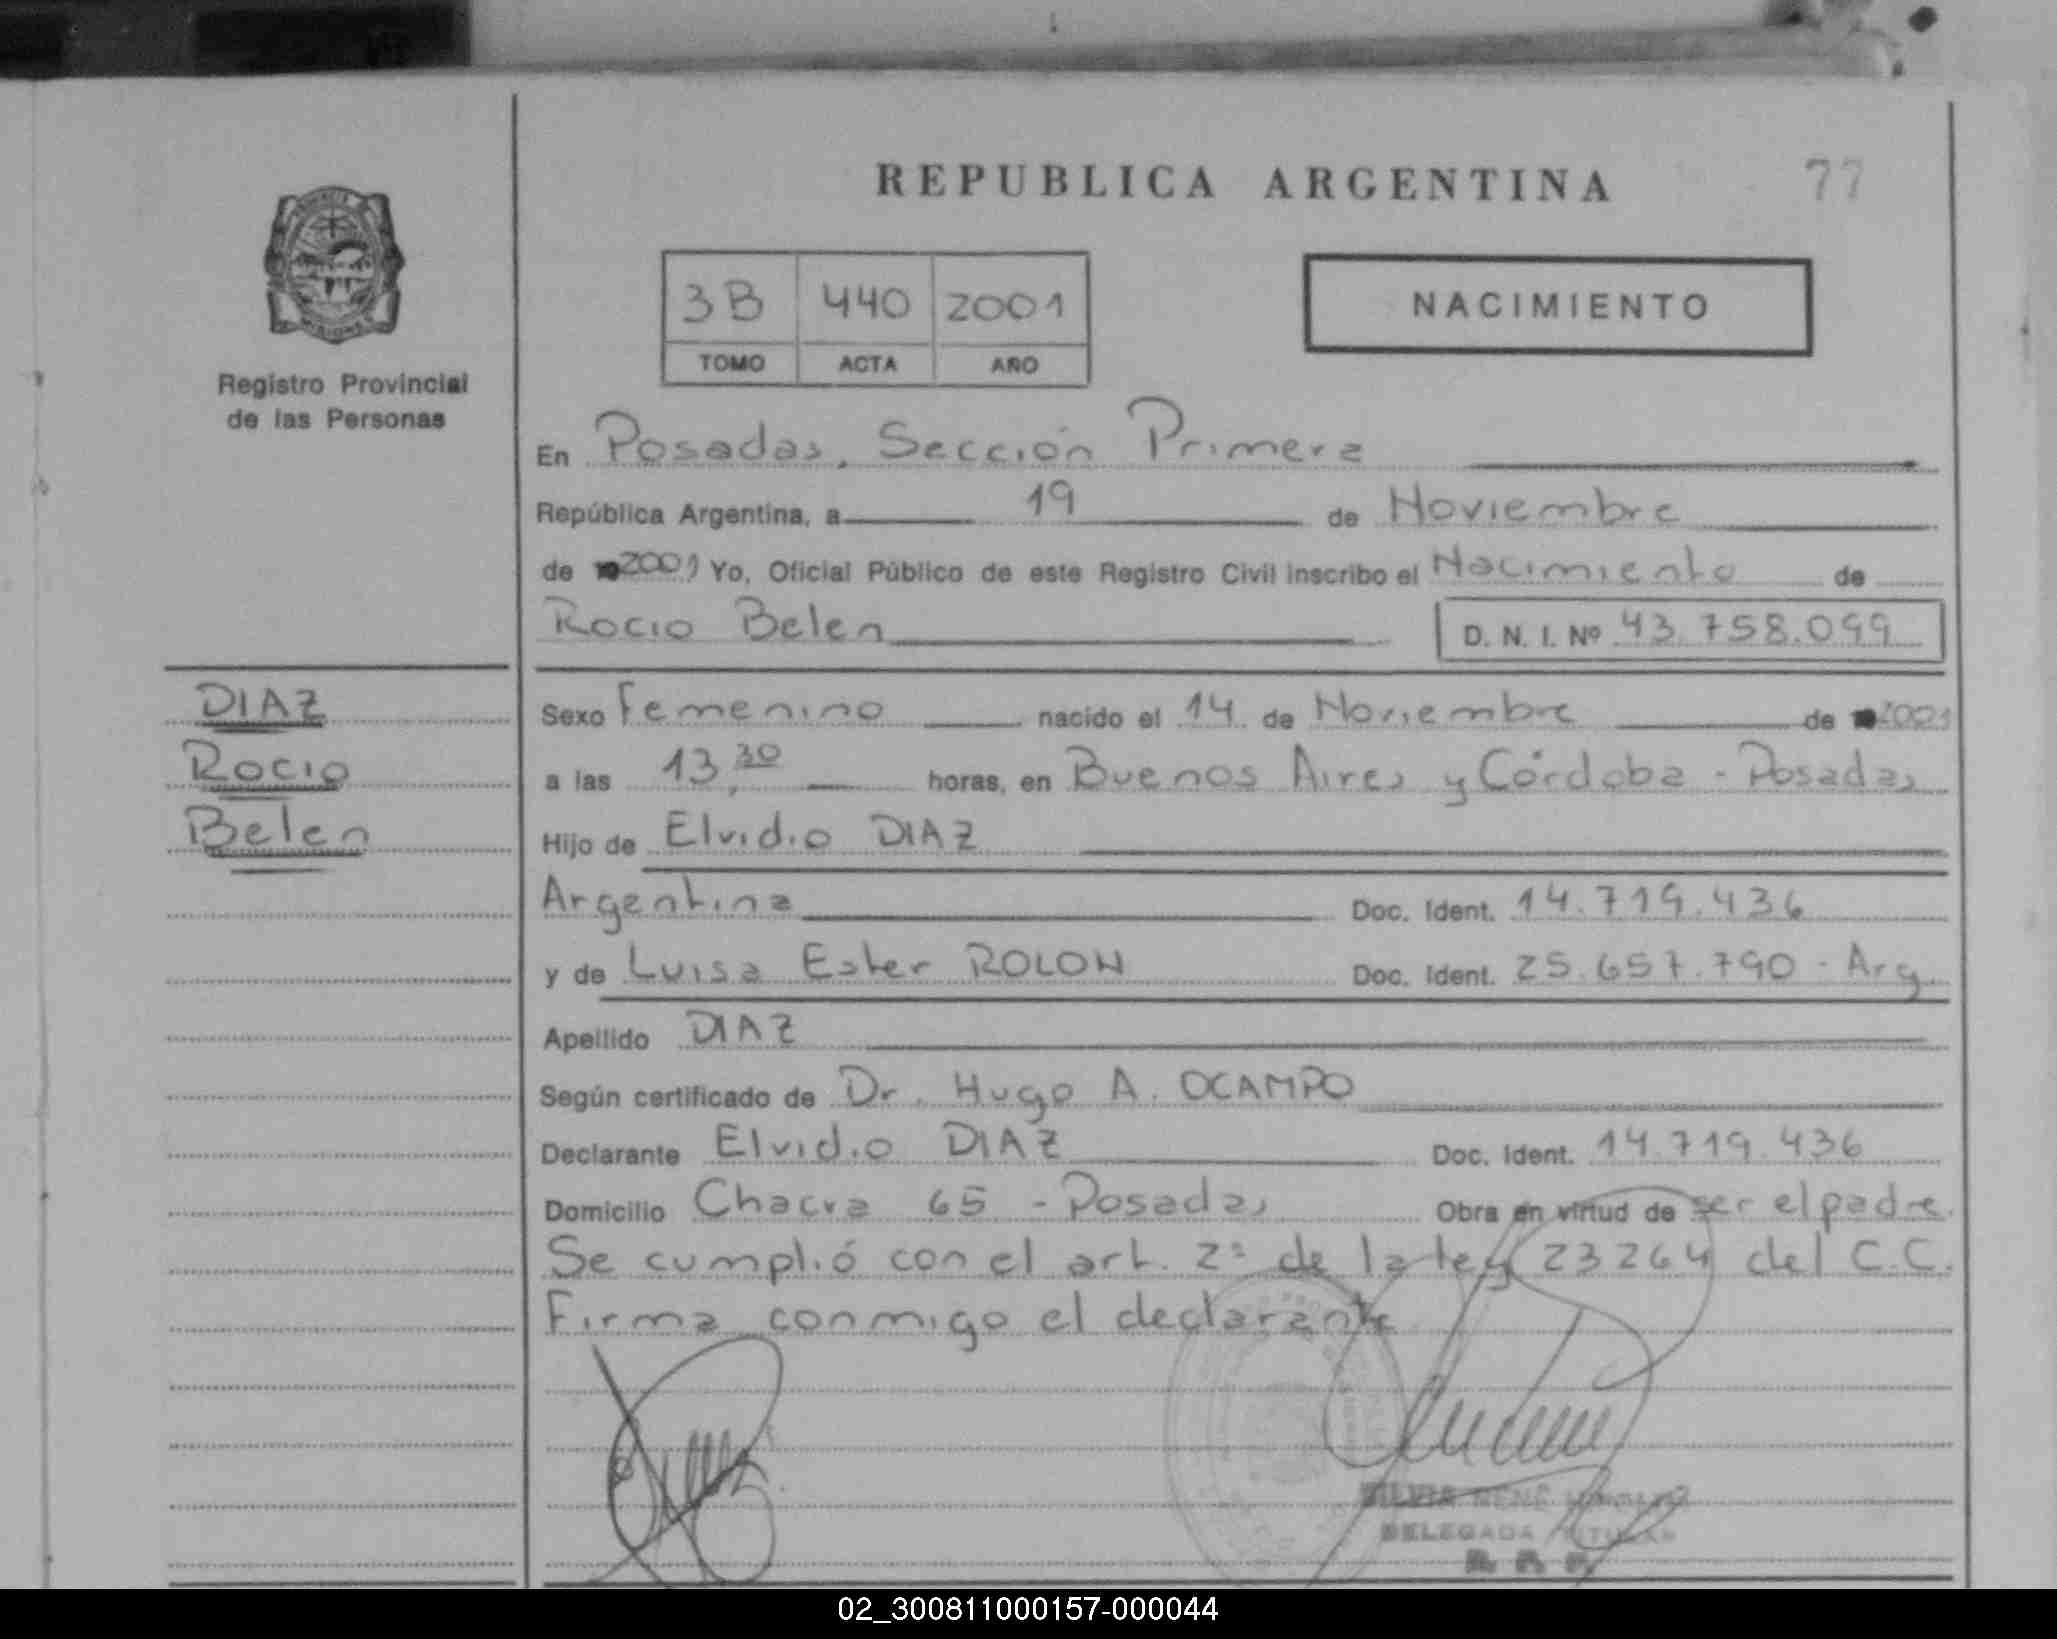 REPUBLICA ARGENTINA 77
3B 440 2001
TOMO ACTA AÑO
NACIMIENTO
MISIONES
Registro Provincial
de las Personas
En Posadas, Sección Primera
República Argentina, a 19 de Noviembre
de 2001 Yo, Oficial Público de este Registro Civil inscribo el Nacimiento de
Rocio Belen D. N. I. Nº 43.758.099
DIAZ
Rocio
Belen
Sexo Femenino nacido el 14 de Noviembre de 2001
a las 13,30 horas, en Buenos Aires y Córdoba - Posadas
Hijo de Elvidio DIAZ
Argentina Doc. Ident. 14.719.436
y de Luisa Ester ROLON Doc. Ident. 25.657.790 - Arg.
Apellido DIAZ
Según certificado de Dr. Hugo A. OCAMPO
Declarante Elvidio DIAZ Doc. Ident. 14.719.436
Domicilio Chacra 65 - Posadas Obra en virtud de ser el padre.
Se cumplió con el art. 2º de la ley 23264 del C.C.
Firma conmigo el declarante
SILVIA RENÉ
DELEGADA TITULAR
02_300811000157-000044